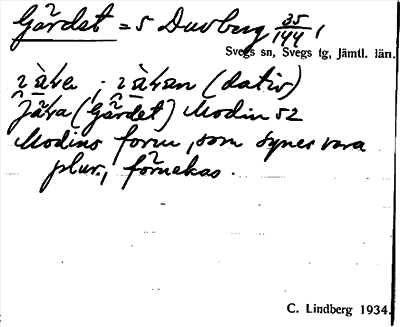 Gärdet = 5 Duvberg 35/144 1
Svegs sn, Svegs tg, Jämtl. län.
(dativ)
Jäka (Gärdet) Modin 52
Modins form, som synes vara
plur., förnekas.
C. Lindberg 1934.